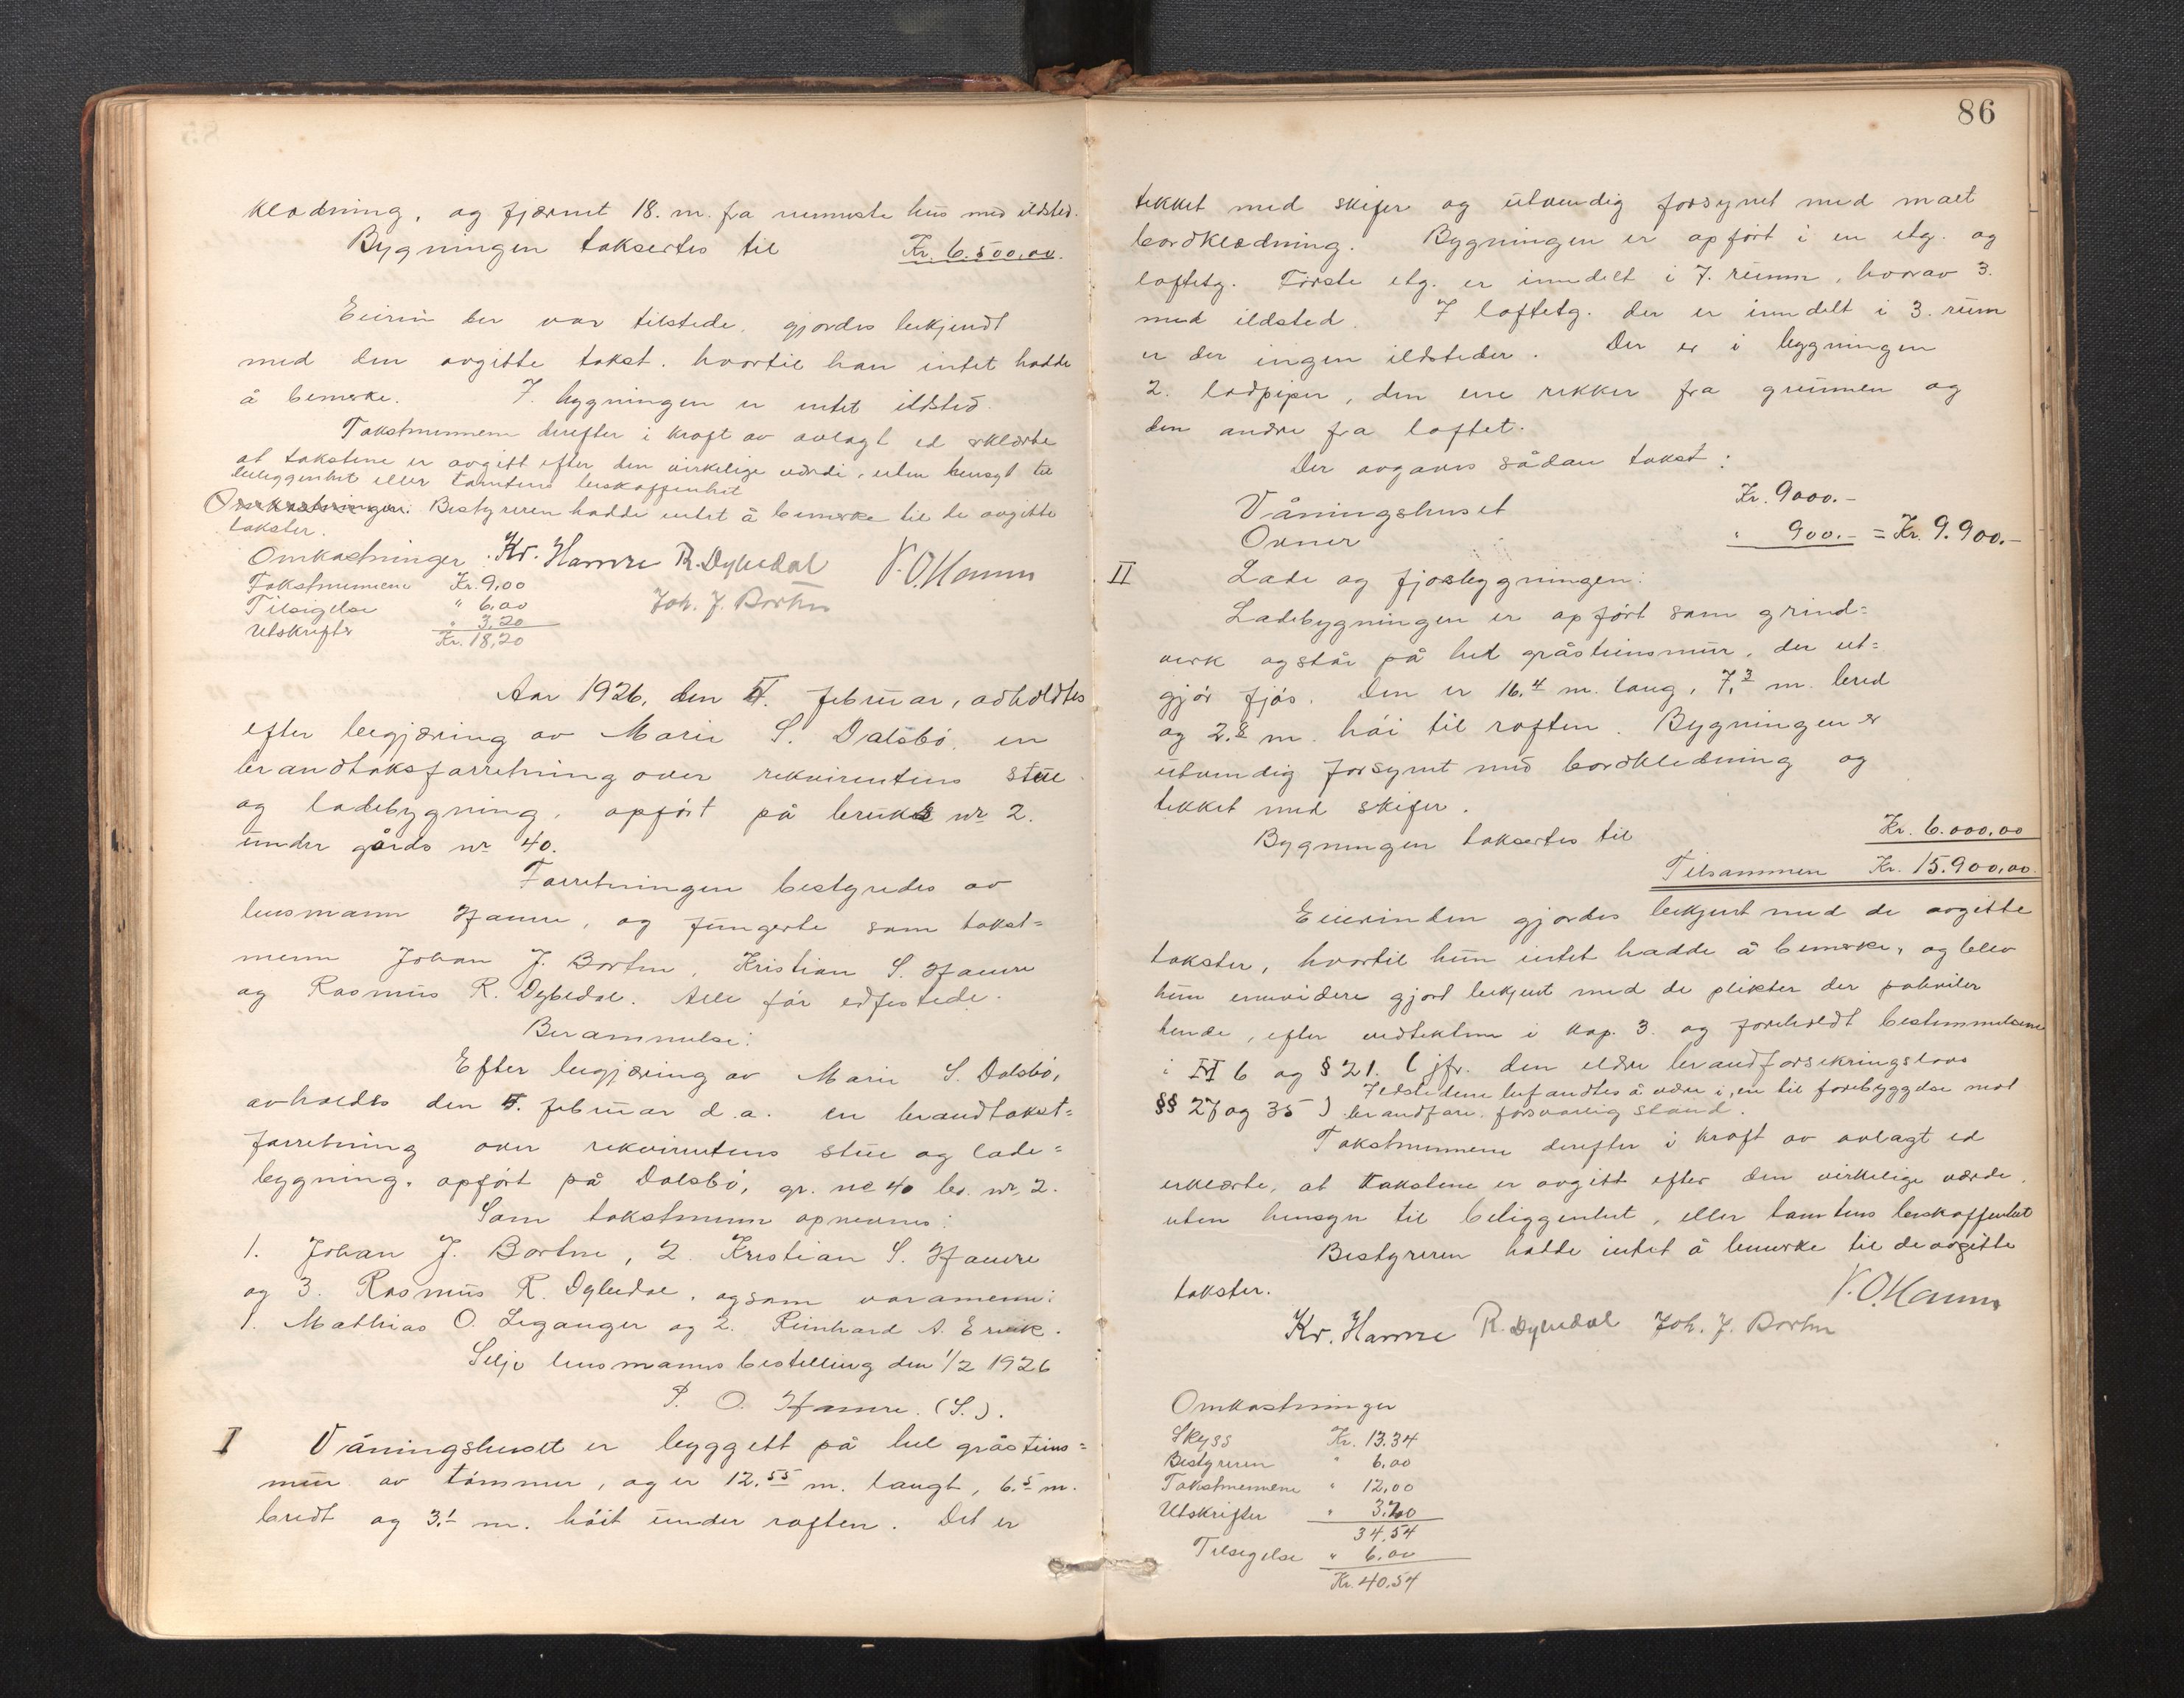 klædning, og fjærnet 18. m. fra nermeste hus med ildsted.
Bygningen taksertes til Kr. 6.500,00.
Eieren der var tilstede, gjordes bekjendt
med den avgitte takst. hvortil han intet hadde
å bemerke. I bygningen er intet ildsted.
Takstmennene derefter i kraft av avlagt ed erklærte
at takstene er avgitt efter den virkelige værdi, uten hensyn til
beliggenhet eller tomtens beskaffenhet
Omkostninger. Bestyreren hadde intet å bemerke til de avgitte
takster.
Omkostninger: Kr. Hamre R. Dybedal P. O. Hamre
Takstmennene Kr. 9,00
Tilsigelse " 6,00 Joh. J. Bortne
Utskrifter " 3,20
Kr. 18,20
Aar 1926, den 5. februar, avholdtes
efter begjæring av Marie S. Dalsbö, en
brandtaksforretning over rekvirentens stue
og ladebygning, opført på bruks nr 2.
under gårds nr 40.
Forretningen bestyredes av
lensmann Hamre, og fungerte som takst=
menn Johan J. Bortne, Kristian S. Hamre
og Rasmus R. Dybedal. Alle før edfestede.
Berammelse:
Efter begjæring av Marie S. Dalsbö,
avholdes den 5. februar d.a. en brandtakst=
forretning over rekvirentens stue og lade=
bygning, opført på Dalsbö, gr. no 40 br. nr. 2.
Som takstmenn opnevnes:
1. Johan J. Bortne, 2. Kristian S. Hamre
og 3. Rasmus R. Dybedal, og som varamenn:
1. Mathias O. Leganger og 2. Reinhard A. Ervik.
Selje lensmannsbestilling den 1/2 1926
P. O. Hamre. (S.).
I Våningshuset er byggett på hel gråsteins=
mur av tømmer, og er 12.55 m. langt, 6.5 m.
bredt og 3.1 m. höit under raften. Det er
86
tekket med skifer og utvendig forsynet med malt
bordklædning. Bygningen er opfört i en etg. og
loftetg. Förste etg. er inndelt i 7. rumm, hvorav 3.
med ildsted. I loftetg. der er inndelt i 3. rum
er der ingen ildsteder. Der er i bygningen
2. lodpiper, den ene rekker fra grunnen og
den andre fra loftet.
Der avgaves sådan takst:
Våningshuset Kr. 9000.-
Ovner " 900.- = Kr. 9.900.-
II Lade og fjosbygningen:
Ladebygningen er opfört som grind=
verk og står på hel gråsteinsmur, der ut=
gjör fjös. Den er 16.4 m. lang, 7.3 m. bred
og 2.8 m. höi til raften. Bygningen er
utvendig forsynt med bordkledning og
tekket med skifer.
Bygningen taksertes til Kr. 6.000,00
Tilsammen Kr. 15.900,00.
Eierinden gjordes bekjent med de avgitte
takster, hvortil hun intet hadde å bemerke, og blev
hun envidere gjort bekjent med de plikter der påhviler
hende, efter vedtektene i kap. 3. og foreholdt bestemmelsene
i 6 og § 21. (jfr. den eldre brandforsekringslovs
§§ 27 og 35) Ildstedene befandtes å være i, en til forebyggelse mot
brandfare. forsvarlig stand.
Takstmennene derefter i kraft av avlagt ed
erklærte, at takstene er avgitt efter den virkelige værde,
uten hensyn til beliggenhet, eller tomtens beskaffenhet
Bestyreren hadde intet å bemerke til de avgitte
takster. P. O. Hamre
Kr. Hamre R. Dybedal Joh. J. Bortne
Omkostninger
Skyss Kr. 13.34
Bestyreren " 6,00
Takstmennene " 12,00
Utskrifter " 3,20
34,54
Tilsigelse " 6,00
Kr. 40,54